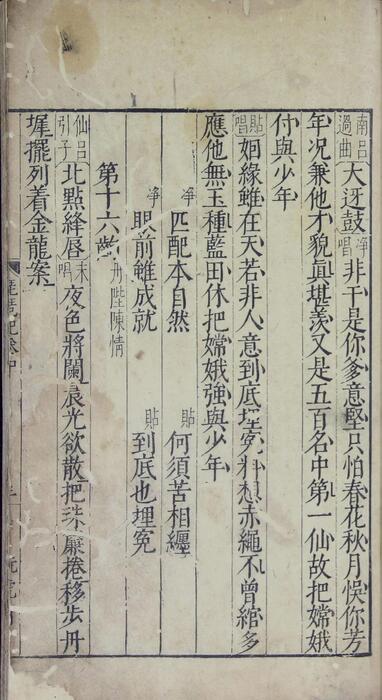 南呂過曲大迓鼓淨唱非干是你爹意堅只怕春花秋月悞你芳
年况兼他才貌眞堪羡又是五百名中第一仙故把嫦娥
付與少年
貼唱姻緣雖在天若非人意到底埋寃料想赤繩不曾綰多
應他無玉種藍田休把嫦娥強與少年
淨匹配本自然 貼何須苦相纏
淨眼前雖成就 貼到底也埋寃
第十六齣丹陛陳情
仙呂引子北點絳唇末唱夜色將闌晨光欲散把珠簾捲移步丹
墀擺列着金龍案
琵琶記卷中